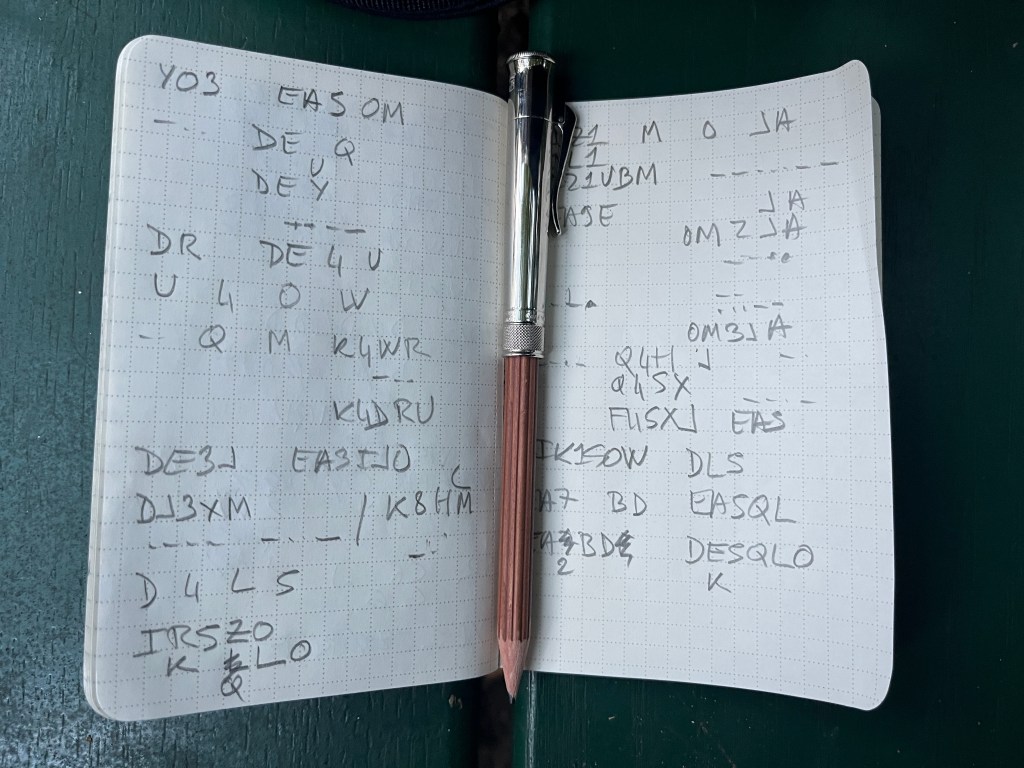 YO3 EA5OM
-··
DE Q
U
DE Y
DR DE4U
U 4 O W
-· Q M K4WR
K4DRU
DE3J EA3IJO
DJ3XM / K8HM
C
---- -··- -··
D 4 L S
IR5ZO
K LO
Q
21 M O JA
1
21UBM
ASE JA
OM2JA
OM3JA
Q4H J
Q4SX
F45XJ EA5
IK1SOW DL5
A7 BD EA5QL
A BD DE5QLO
2 K